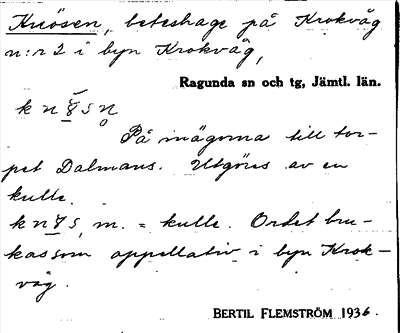 Knösen, beteshage på Krokvåg
n:r 2 i byn Krokvåg,
Ragunda sn och tg, Jämtl. län.
På inägorna till tor-
pet Dalmans. Utgöres av en
kulle.
m. = kulle. Ordet bru-
kas som appellativ i byn Krok-
våg.
BERTIL FLEMSTRÖM 1936.